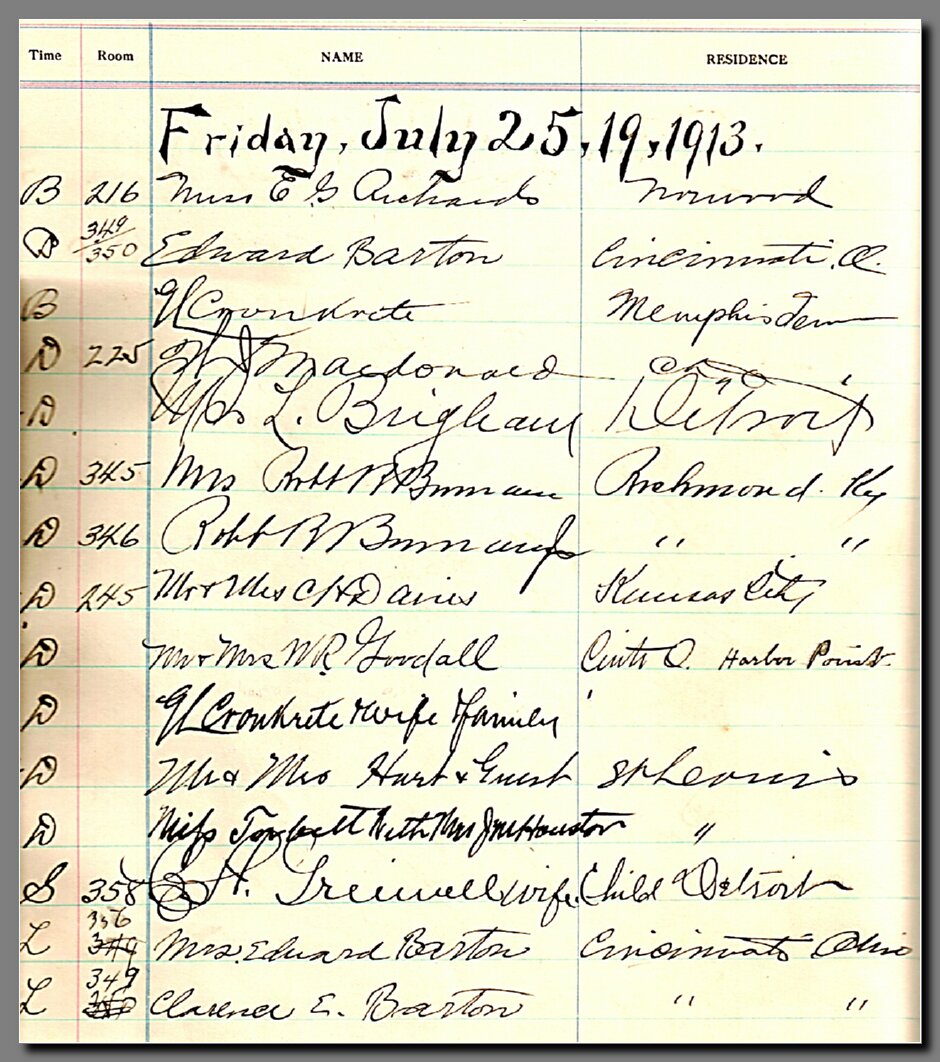 Time Room NAME RESIDENCE
Friday, July 25, 19, 1913.
B 216 Miss E G Richards Norwood
B 349/350 Edward Barton Cincinnati, O.
B Cronkrete Memphis Tenn
D 225 Macdonald
D L. Brigham Detroit
D 345 Mrs Robt R Burnam Richmond. Ky
D 346 Robt R Burnam Jr " "
D 245 Mr & Mrs C H Davies Kansas City
D Mr & Mrs W R Goodall Cinti O. Harbor Point.
D Cronkrete & wife & family
D Mr & Mrs Hart & Guest St Louis
D Miss With Mrs Houston "
S 358 H. wife, Child Detroit
356
L 349 Mrs. Edward Barton Cincinnati Ohio
349
L Clarence E. Barton " "